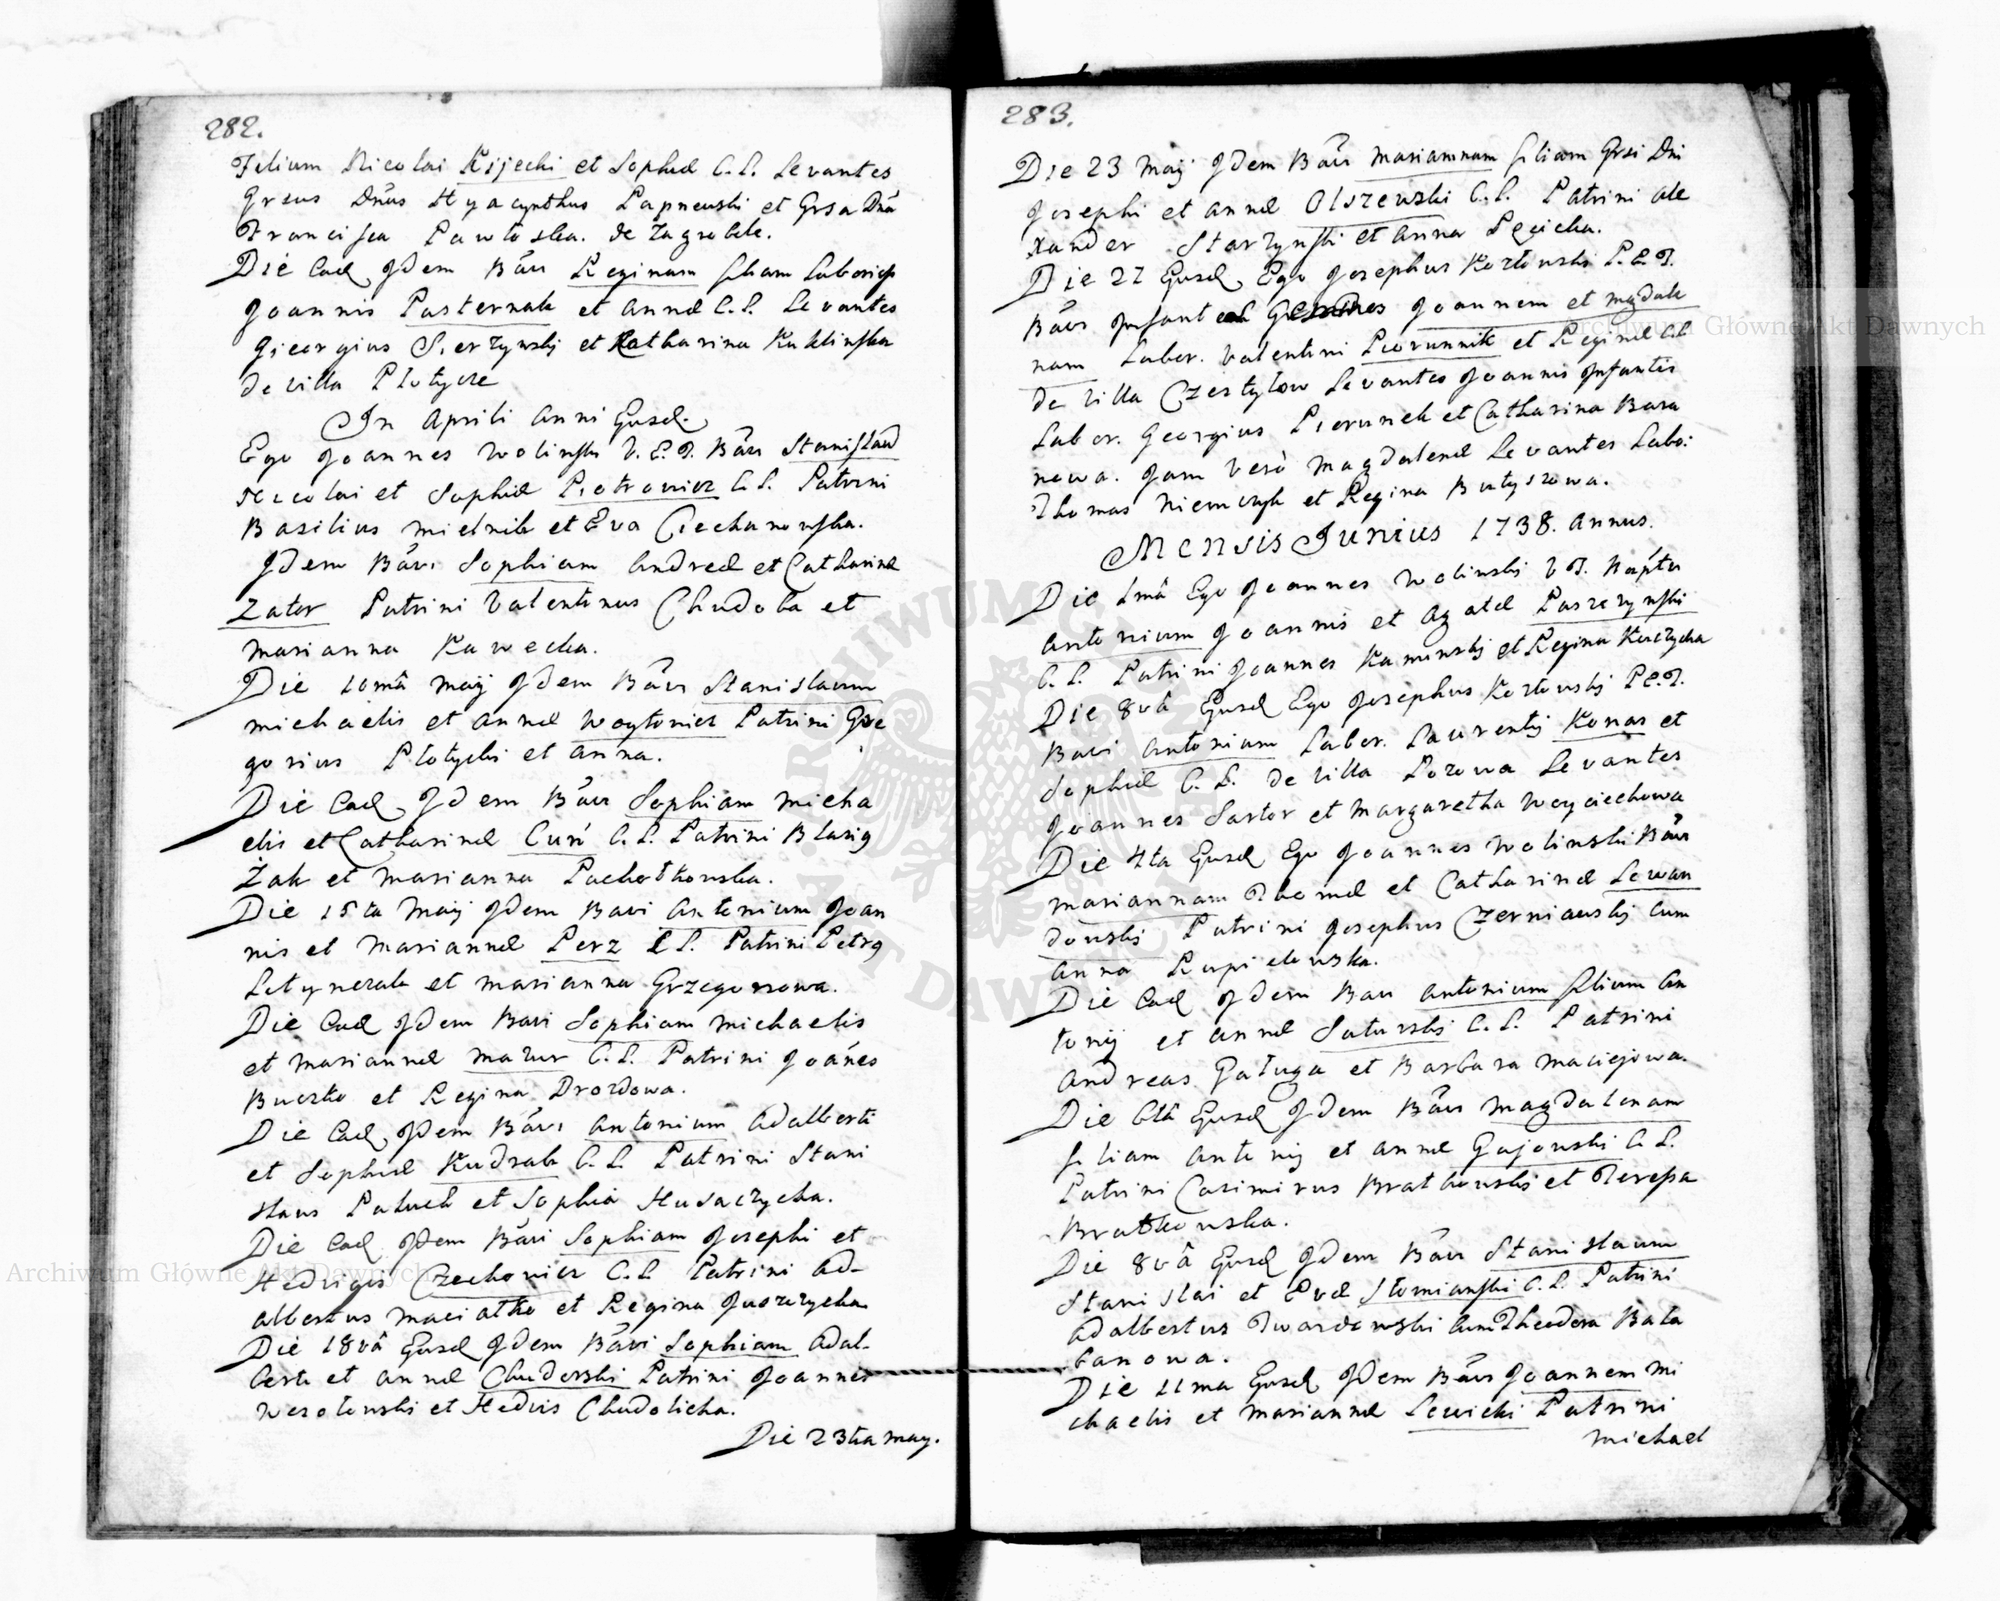 282.
Filium Nicolai Kijecki et Sophiæ C.L. Levantes
Grsus Dnus Hyacynthus Łapnewski et Grsa Dna
Francisca Pawłoska. de Zagrobele.
Die Ead. Idem Bavi Reginam filiam Laboriosi
Joannis Pasternak et Annæ C.L. Levantes
Gieorgius Sierzynski et Katharina Kuklinska
de villa Płotycze
In Aprili Anni Ejusd.
Ego Joannes Wolinski V.E.T. Bavi Stanislaū
Nicolai et Sophiæ Piotrowicz C.L. Patrini
Basilius Mielnik et Eva Ciechanowska.
Idem Bavi Sophiam Andreæ et Catharinæ
Zator Patrini Valentinus Chudoba et
Marianna Kawecka.
Die 10mâ Maij Idem Bavi Stanislaum
Michaelis et Annæ Woytowicz Patrini Gre
gorius Płotycki et Anna.
Die Ead. Idem Bavi Sophiam Micha
elis et Catharinæ Cuń C.L. Patrini Blasig
Żak et Marianna Pachołkowska.
Die 15ta Maij Idem Bavi Antonium Joan
nis et Mariannæ Perz C.L. Patrini Petrg
Letynczak et Marianna Grzegorzowa.
Die Ead Idem Bavi Sophiam Michaelis
et Mariannæ Mazur C.L. Patrini Joānes
Buczko et Regina Drozdowa.
Die Ead. Idem Bavi Antonium Adalberti
et Sophiæ Kudrab C.L. Patrini Stani
slaus Paluch et Sophia Husaczycha.
Die Ead. Idem Bavi Sophiam Josephi et
Hedvigis Czechowicz C.L. Patrini Ad-
albertus Maciatko et Regina
Die 18vâ Ejusd Idem Bavi Sophiam Adal-
berti et Annæ Chuderski Patrini Joannes
Wesołowski et Hedvis Chudolicha.
Die 23tia May.
283.
Die 23 Maij Idem Bavi Mariamnam filiam Grsi Dni
Josephi et Annæ Olszewski C.L. Patrini Ale
xander Starzynski et Anna
Die 27 Ejusd. Ego Josephus Kozłowski P.E.T.
Bavi Infantes Gemines Joannem et Magdale
nam Labor. Valentini Piorunnik et Reginæ C.L.
de villa Czestyłow Levantes Joannis Infantis
Labor. Georgius Piorunek et Catharina Bara
nowa. Jam verò Magdalenæ Levantes Labo:
Thomas Niemczyk et Regina Butyszowa.
Mensis Junius 1738. Annus.
Die 1mâ Ego Joannes Wolinski V.T.
Antonium Joannis et Agatæ Paszczynski
C.L. Patrini Joannes Kaminski et Regina Kuczycha
Die 8vâ Ejusd Ego Josephus Kozłowski P.E.T.
Bavi Antonium Labor. Laurentij Konar et
Sophiæ C.L. de villa Łozowa Levantes
Joannes Sartor et Margaretha Woyciechowa
Die 4ta Ejusd Ego Joannes Wolinski Bavi
Mariannam Thomæ et Catharinæ Lewan
dowski Patrini Josephus Czerniawski cum
Anna
Die Ead Idem Bavi Antonium filium An
tonij et Annæ Saturski C.L. Patrini
Andreas Gaługa et Barbara Maciejowa.
Die 6tâ Ejusd Idem Bavi Magdalenam
filiam Antonij et Annæ Gajowski C.L.
Patrini Casimirus Bratkowski et Teressa
Bratkowska.
Die 8vâ Ejusd Idem Bavi Stanislaum
Stanislai et Evæ Słomianski C.L. Patrini
Adalbertus Twardowski cum Theodora Bala
banowa.
Die 11ma Ejusd Idem Bavi Joannem Mi
chaelis et Mariannæ Lewicki Patrini
Michael